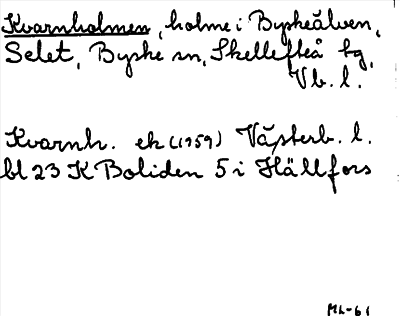 Kvarnholmen, holme i Byskeälven,
Selet, Byske sn, Skellefteå tg,
Vb. l.
Kvarnh. ek (1959) Västerb. l.
bl 23 K Boliden 5 i Hällfors
ML-61